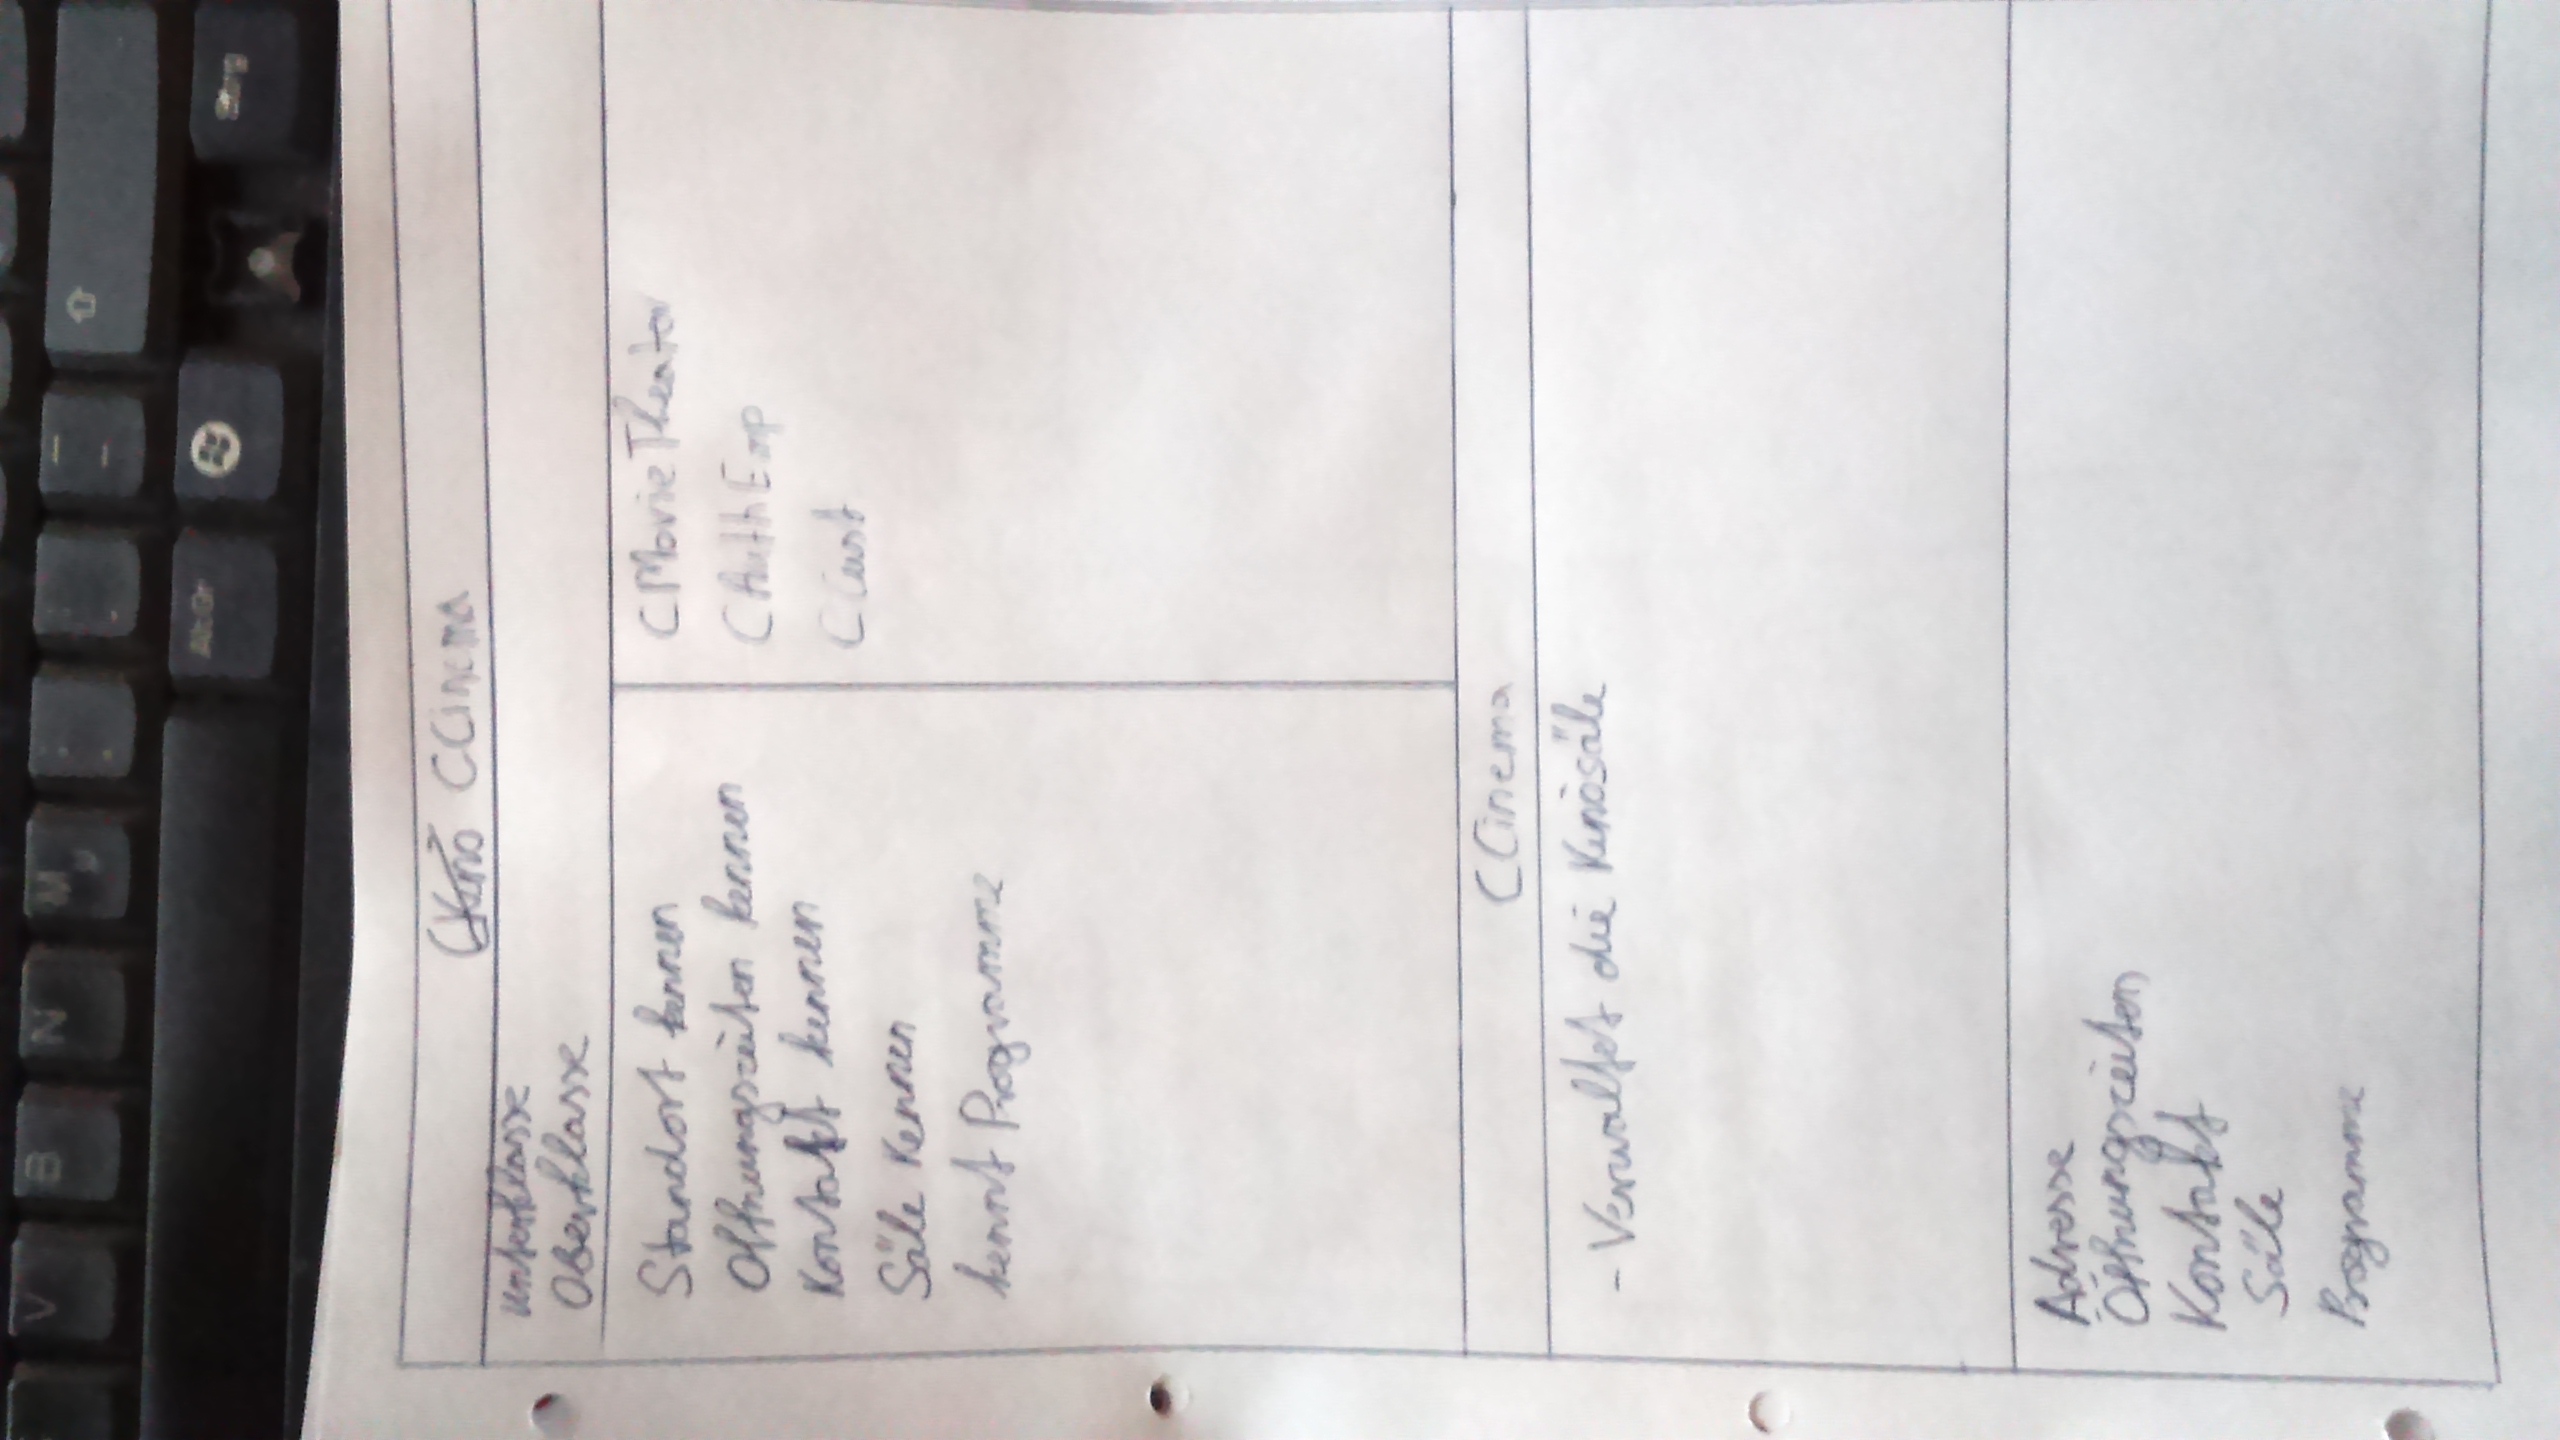 V B N M µ ; , : . _ -
Alt Gr Strg
CKino CCinema
Unterklasse
Oberklasse
Standort kennen
Öffnungszeiten kennen
Kontakt kennen
Säle Kennen
kennt Programme
CMovieTheater
CAuthEmp
CCust
CCinema
- Verwaltet die Kinosäle
Adresse
Öffnungszeiten
Kontakt
Säle
Programme